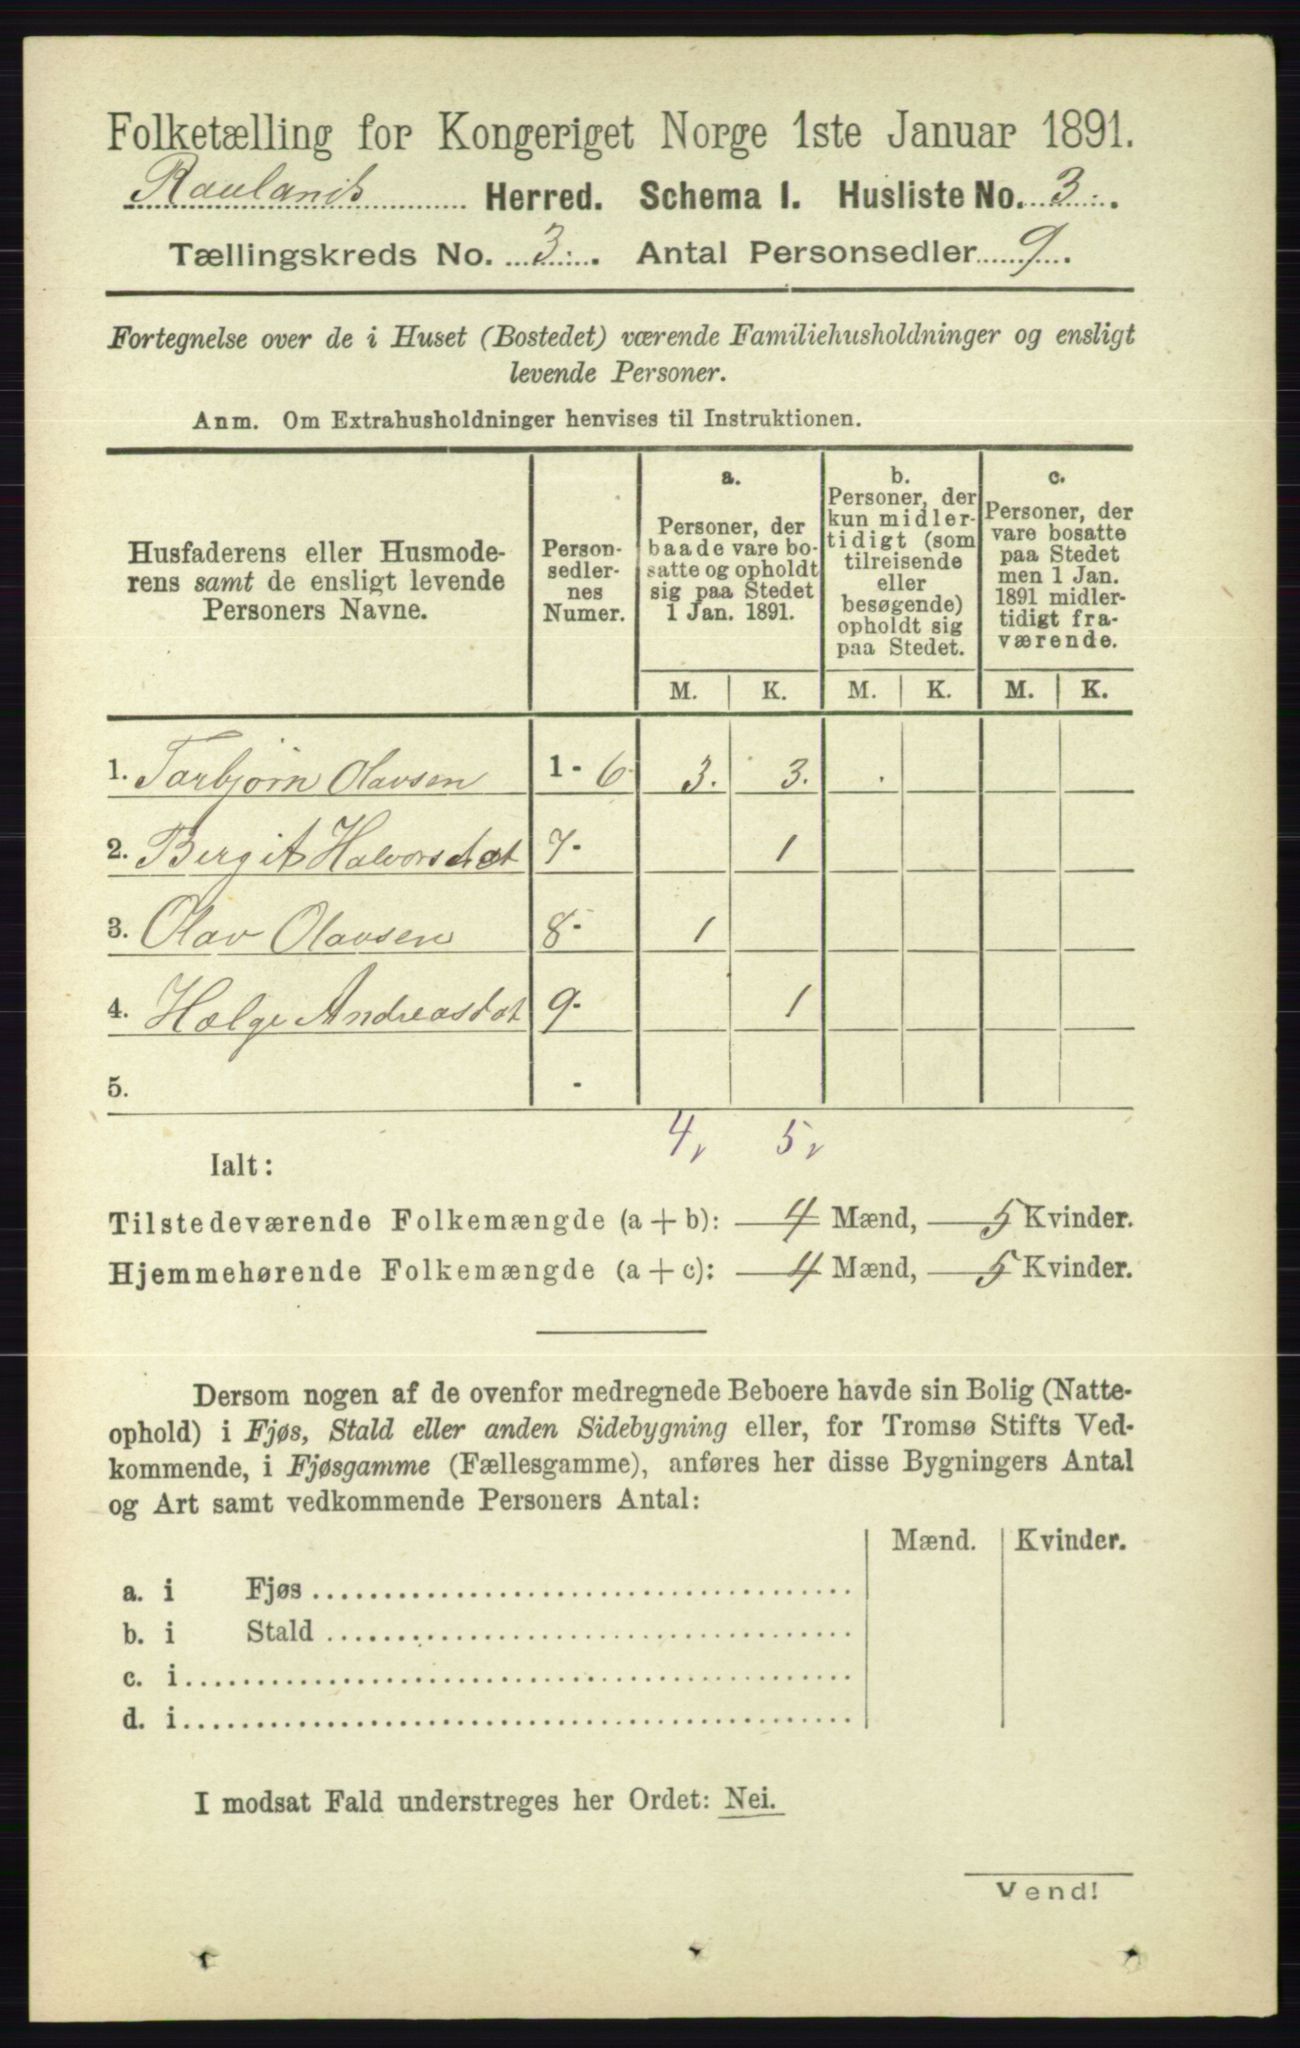 Folketælling for Kongeriget Norge 1ste Januar 1891.
Raulands Herred. Schema I. Husliste No. 3.
Tællingskreds No. 3. Antal Personsedler 9.
Fortegnelse over de i Huset (Bostedet) værende Familiehusholdninger og ensligt
levende Personer.
Anm. Om Extrahusholdninger henvises til Instruktionen.
Husfaderens eller Husmode-
rens samt de ensligt levende
Personers Navne.
Person-
sedler-
nes
Numer.
a.
Personer, der
baade vare bo-
satte og opholdt
sig paa Stedet
1 Jan. 1891.
b.
Personer, der
kun midler-
tidigt (som
tilreisende
eller
besøgende)
opholdt sig
paa Stedet.
c.
Personer, der
vare bosatte
paa Stedet
men 1 Jan.
1891 midler-
tidigt fra-
værende.
M. K. M. K. M. K.
1. Torbjørn Olavsen 1 - 6 3. 3.
2. Bergit Halvorsdat 7 - 1
3. Olav Olavsen 8 - 1
4. Hælge Andreasdat 9 - 1
5. -
4, 5,
Ialt:
Tilstedeværende Folkemængde (a + b): 4 Mænd, 5 Kvinder.
Hjemmehørende Folkemængde (a + c): 4 Mænd, 5 Kvinder.
Dersom nogen af de ovenfor medregnede Beboere havde sin Bolig (Natte-
ophold) i Fjøs, Stald eller anden Sidebygning eller, for Tromsø Stifts Ved-
kommende, i Fjøsgamme (Fællesgamme), anføres her disse Bygningers Antal
og Art samt vedkommende Personers Antal:
Mænd. Kvinder.
a. i Fjøs
b. i Stald
c. i
d. i
I modsat Fald understreges her Ordet: Nei.
Vend!